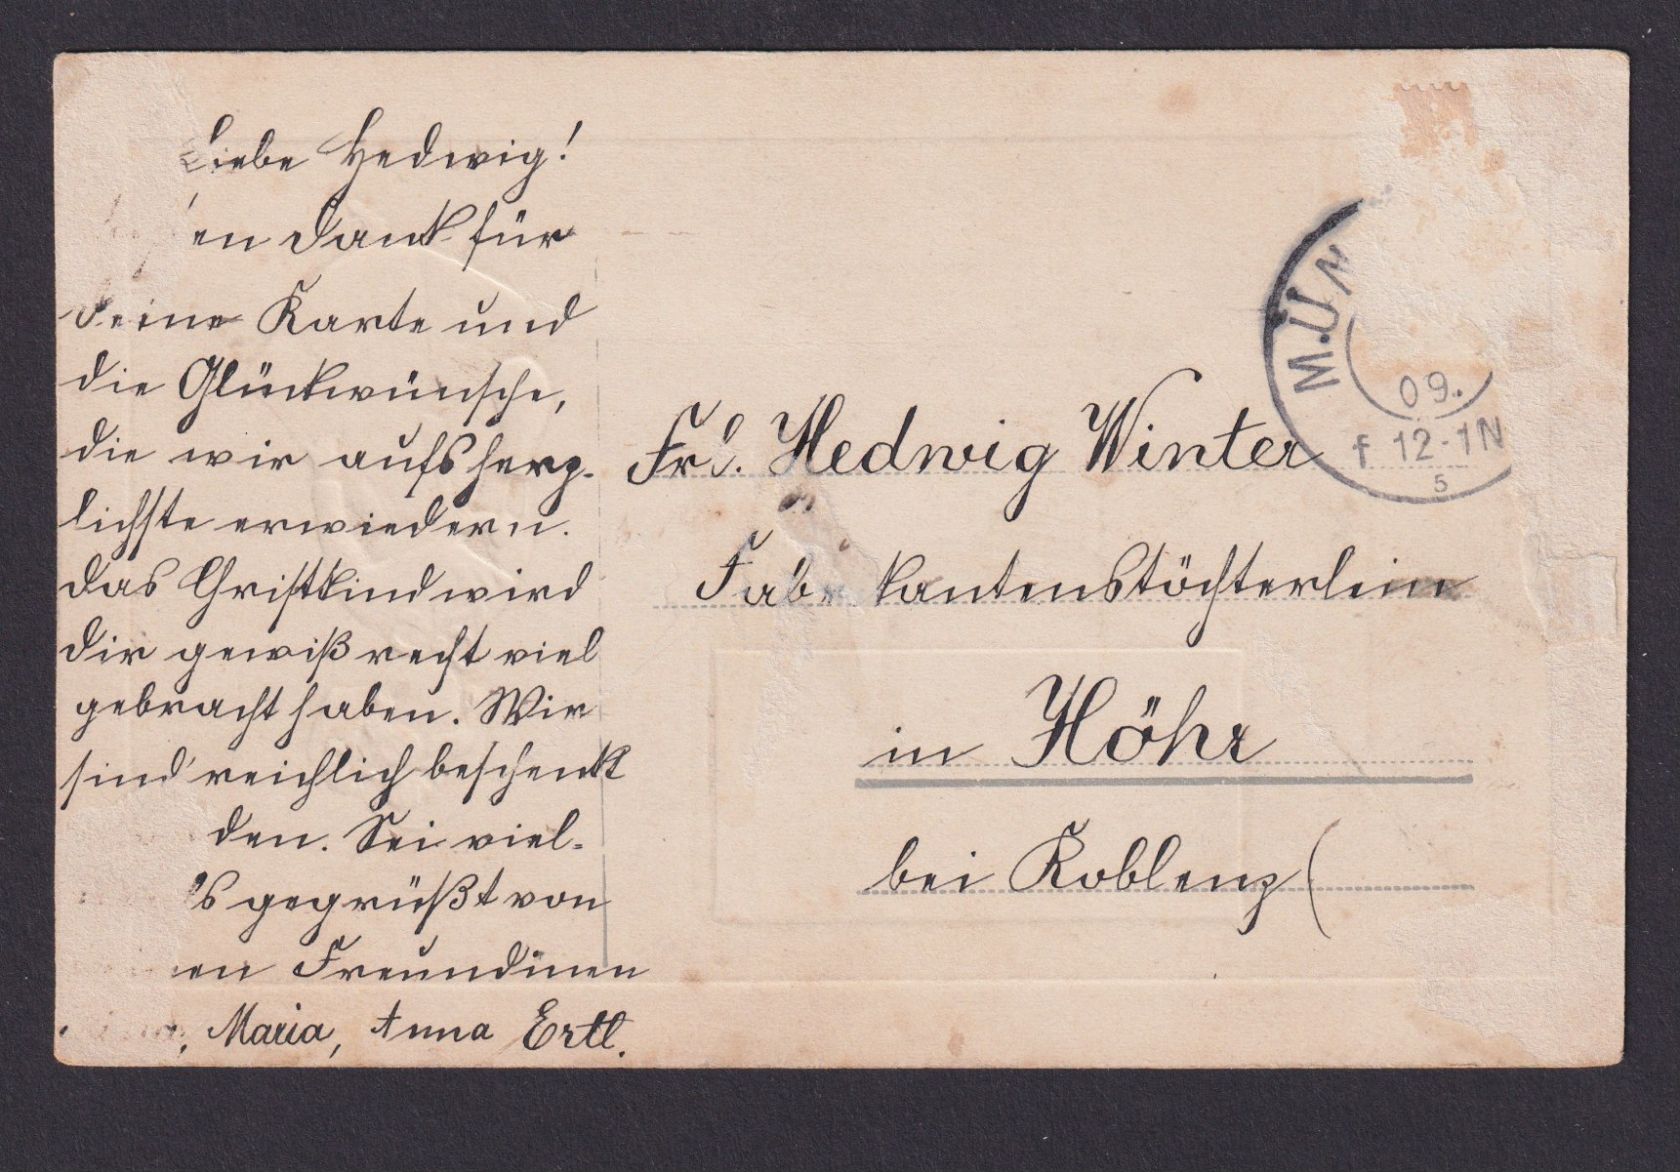 Liebe Hedwig!
en Dank für
Deine Karte und
die Glückwünsche,
die wir aufs herz-
lichste erwiedern.
Das Christkind wird
Dir gewiß recht viel
gebracht haben. Wir
sind reichlich beschenkt
den. Sei viel-
s gegrüßt von
en Freundinen
, Maria, Anna Ertl.
MÜN
09.
f 12-1N
5
Frl. Hedwig Winter
Fabrikantenstöchterlein
in Höhr
bei Koblenz (